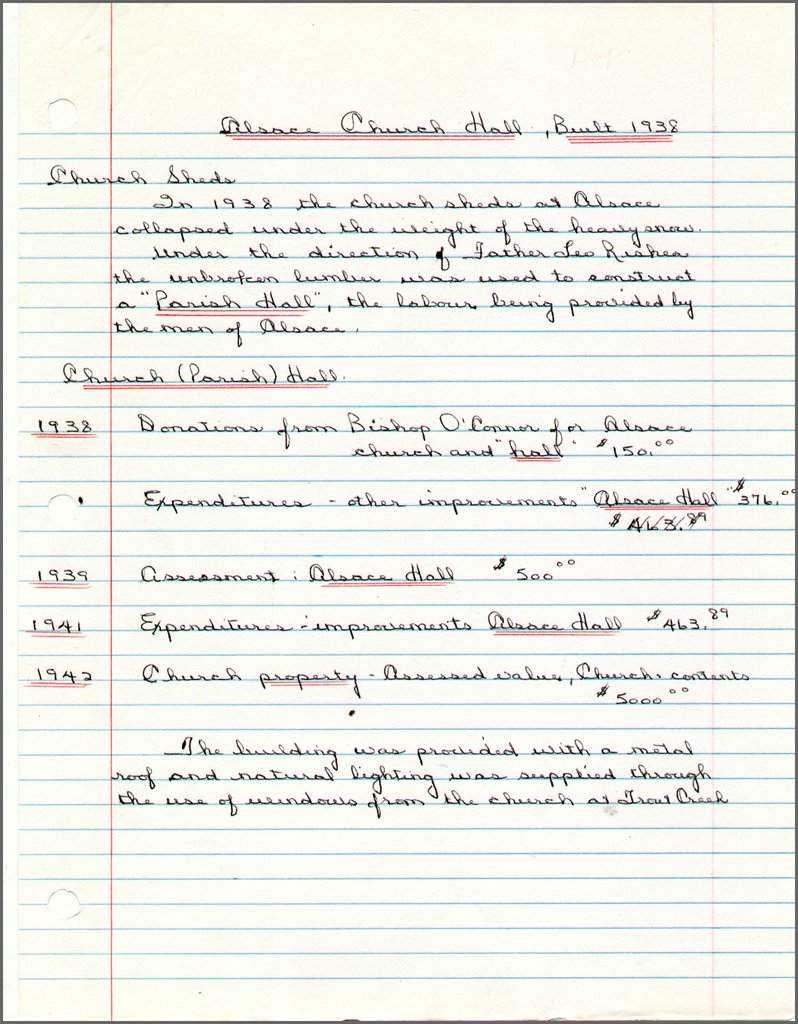 Alsace Church Hall, Built 1938
Church Sheds
In 1938 the church sheds at Alsace
collapsed under the weight of the heavy snow.
Under the direction of Father Leo Rishea
the unbroken lumber was used to construct
a "Parish Hall", the labour being provided by
the men of Alsace.
Church (Parish) Hall.
1938 Donations from Bishop O'Connor for Alsace
church and "hall" $150.00
Expenditures - other improvements "Alsace Hall" $376.00
$463.89
1939 Assessment: Alsace Hall $500.00
1941 Expenditures - improvements Alsace Hall $463.89
1942 Church property - Assessed value, Church, contents
$5000.00
The building was provided with a metal
roof and natural lighting was supplied through
the use of windows from the church at Trout Creek